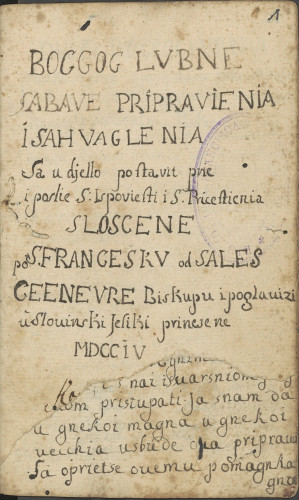 1
BOGGOG LVBNE
SABAVE PRIPRAVIENIA
I SAHVAGLENIA
Sa u djello postavit prie
i poslie S. Ispoviesti i S. Pricestienia
SLOSCENE
po S. FRANCESKV od SALES
GEENEVRE Biskupu i poglavizi
u Slovinski Jeſiki prinesene
MDCCIV
i s nai isvarsniom
pristupati Ja snam da
u gnekoi magna u gnekoi
vecchia usbude ova priprav
Sa oprietse ovemu pomagnka
gne